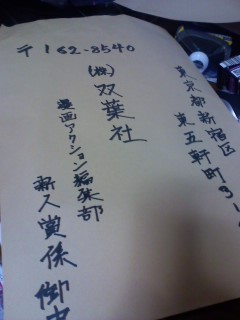 〒162-8540
東京都新宿区
東五軒町3-
(株)双葉社
漫画アクション編集部
新人賞係 御中